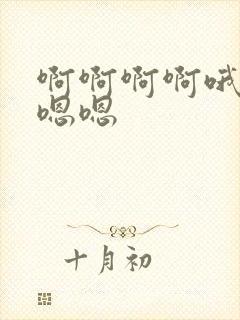 啊啊啊啊哦
嗯嗯
十月初